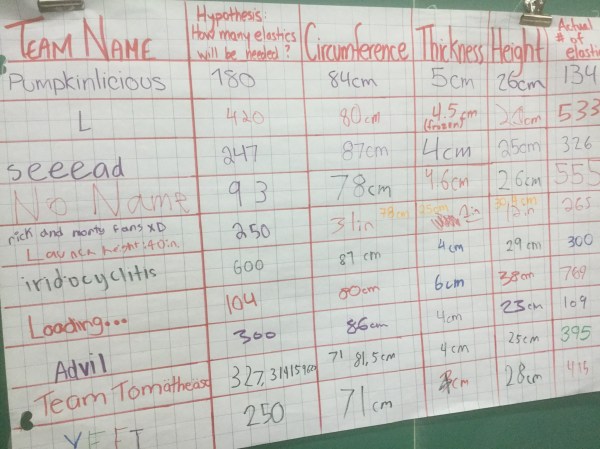 TEAM NAME Hypothesis: How many elastics will be needed? Circumference Thickness Height Actual # of elasti
Pumpkinlicious 180 84cm 5cm 26cm 134
L 420 80cm 4.5cm (frozen) 533
seeead 247 87cm 4cm 25cm 326
No Name 93 78cm 4.6cm 26cm 555
rick and morty fans XD 250 31in 2in 265
Launch height: 40in.
iridocyclitis 600 87cm 4cm 29cm 300
Loading... 104 80cm 6cm 38cm 769
Advil 300 86cm 4cm 23cm 109
Team Tomathease 327,31415960 71 81,5cm 4cm 25cm 395
YEET 250 71cm cm 28cm